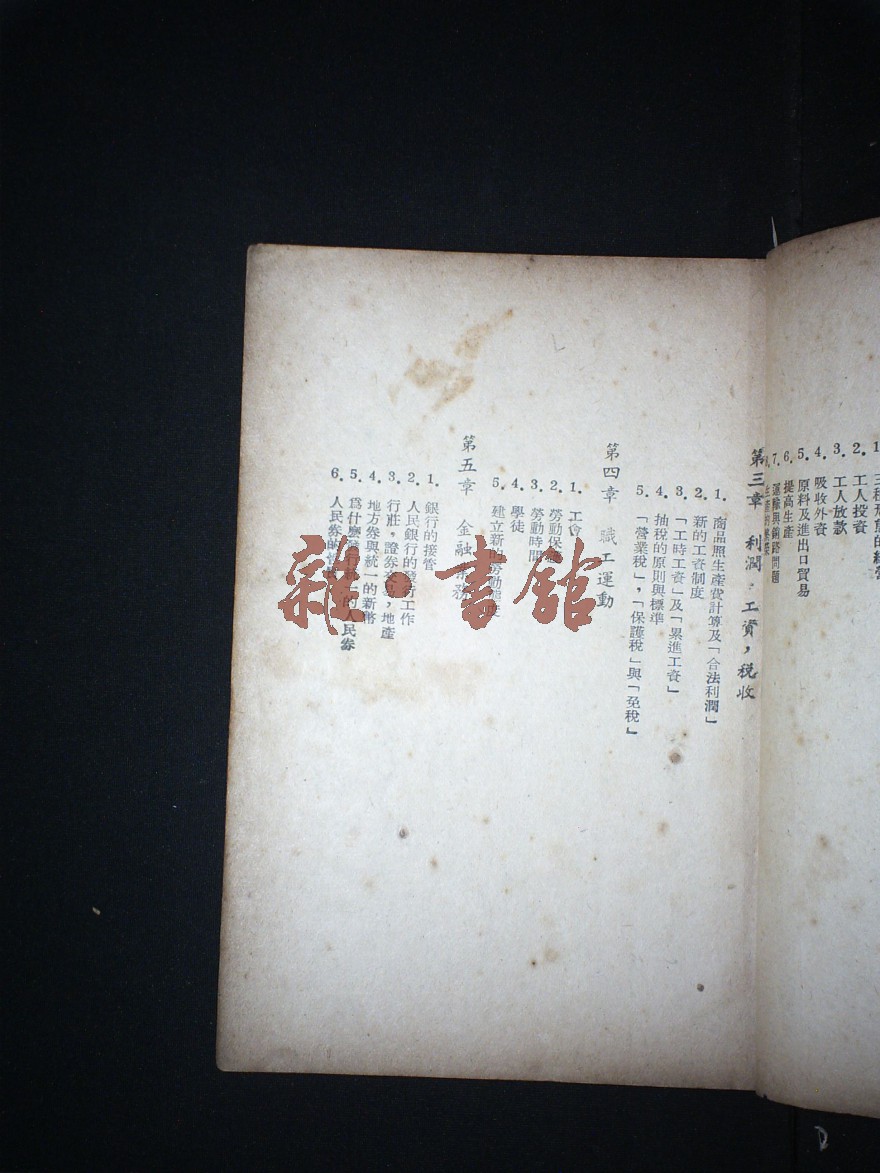 1.
2. 工人投資
3. 工人放款
4. 吸收外資
5. 原料及進出口貿易
6. 提高生產
7. 運輸與銷路問題
第三章 利潤,工資,税收
1. 商品照生產費計算及「合法利潤」
2. 新的工資制度
3. 「工時工資」及「累進工資」
4. 抽稅的原則與標準
5. 「營業稅」,「保護稅」與「免稅」
第四章 職工運動
1. 工會
2. 勞動保
3. 勞動時間
4. 學徒
5. 建立新的勞動態度
第五章 金融 務
1. 銀行的接管
2. 人民銀行的發行工作
3. 行莊,證券 ,地產
4. 地方券與統一的新幣
5. 爲什麽發行統一的人民券
6. 人民券的
雜·書館